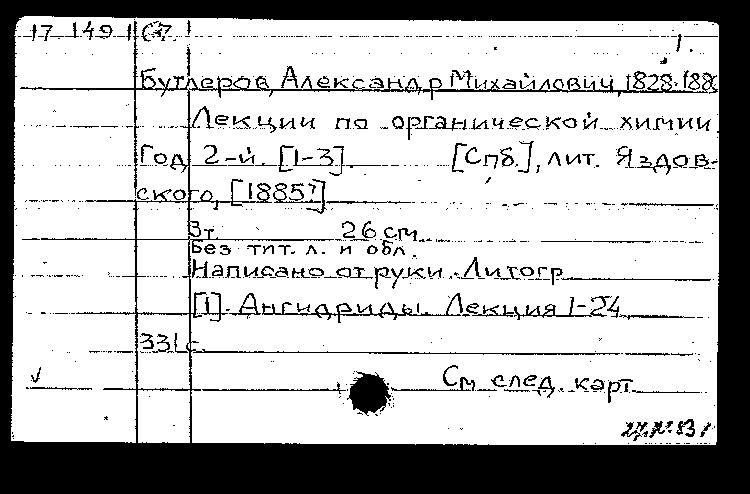 17 149 1
1.
Бутлеров, Александр Михайлович, 1828-188
Лекции по органической химии.
Год 2-й. [1-3]. [Спб.], лит. Яздов-
ского, [1885?]
3т. 26 см.
Без тит. л. и обл.
Написано от руки. Литогр.
[1]. Ангидриды. Лекция 1-24.
331 с.
См. след. карт.